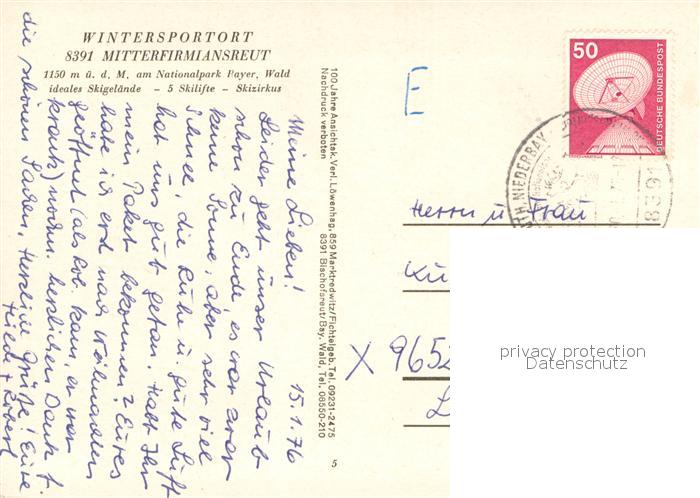 WINTERSPORTORT
8391 MITTERFIRMIANSREUT
1150 m ü. d. M. am Nationalpark Bayer, Wald
ideales Skigelände – 5 Skilifte – Skizirkus
15.1.76
Meine Lieben!
Leider geht unser Urlaub
schon zu Ende, es war zwar
keine Sonne, aber sehr viel
Schnee, die Ruhe u. gute Luft
hat uns gut getan. Habt Ihr
mein Paket bekommen? Eures
habe ich erst nach Weihnachten
geöffnet (als Rob. kam, er war
krank) nochm. herzlichen Dank f.
die schönen Sachen. Herzliche Grüße! Eure
+ Robert
100 Jahre Ansichtsk. Verl. Löwenhag, 859 Marktredwitz/Fichtelgeb, Tel. 09231-2475
Nachdruck verboten 8391 Bischofsreut/Bay. Wald, Tel. 08550-210
5
E
50
DEUTSCHE BUNDESPOST
NIEDERBAY
8391
Herrn u Frau
X 9652
privacy protection
Datenschutz